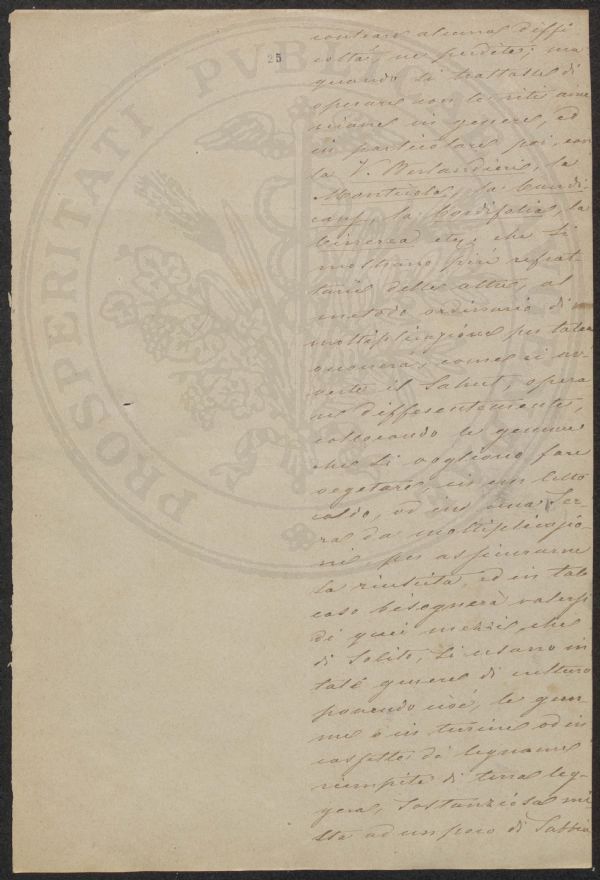 25
PROSPERITATI PVBLICAE
contrare alcuna diffi
coltà, ne perdite; ma
quando si trattasse di
operare con le viti ame
ricane in genere, ed
in particolare poi, con
la V. Berlandieri, la
Monticola, la Candi
cans, la Cordifolia, la
Cinerea etc, che si
mostrano più refrat-
tarie delle altre, al
metodo ordinario di
moltiplicazione per talea,
converrà, come ci av
verte il Sahut, opera
re differentemente,
collocando le gemme
che si vogliono fare
vegetare, in un letto
caldo, od in una Ser-
ra da moltiplicazio-
ni, per assicurarne
la riuscita, ed in tale
caso bisognerà valersi
di quei mezzi, che
di solito, si usano in
tale genere di coltura
ponendo cioè, le gem-
me o in terrine od in
cassette di legname
riempite di terra leg-
gera, sostanziosa mi-
sta ad un poco di Sabbia